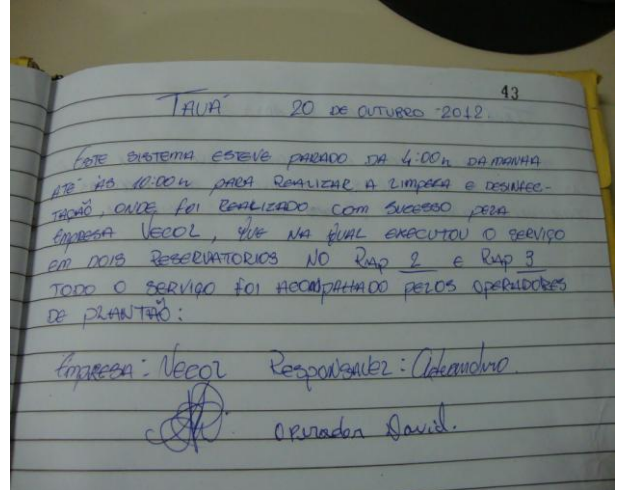 43
TAUÁ 20 DE OUTUBRO - 2012.
ESTE SISTEMA ESTEVE PARADO DA 4:00h DA MANHA
ATÉ AS 10:00h PARA REALIZAR A LIMPEZA E DESINFEC-
TAÇÃO, ONDE FOI REALIZADO COM SUCESSO PELA
EMPRESA VECOL, QUE NA QUAL EXECUTOU O SERVIÇO
EM DOIS RESERVATORIOS NO RAP 2 E RAP 3
TODO O SERVIÇO FOI ACOMPANHADO PELOS OPERADORES
DE PLANTÃO:
EMPRESA: VECOL RESPONSAVEL:
OPERADOR David.